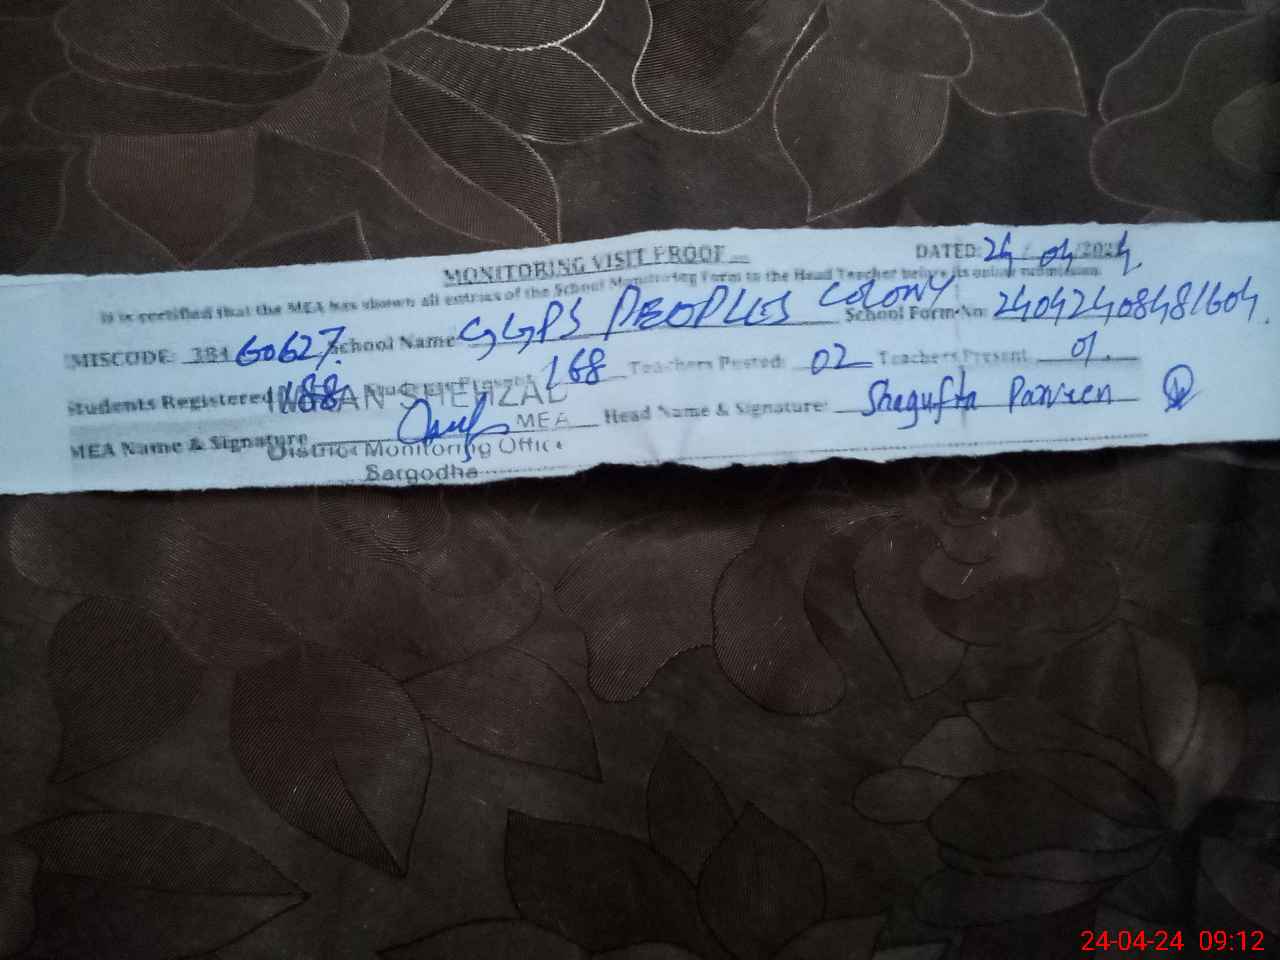 MONITORING VISIT PROOF DATED: 24/04/2024
It is certified that the MEA has shown all entries of the School Monitoring Form to the Head Teacher before its online submission.
MISCODE: 384 60627. School Name GGPS PEOPLES COLONY School Form No: 24042408481604.
Students Registered 188 Students Present 168 Teachers Posted: 02 Teachers Present 01.
SHEHZAD
MEA Name & Signature MEA Head Name & Signature: Shagufta Parveen
District Monitoring Office
Sargodha
24-04-24 09:12